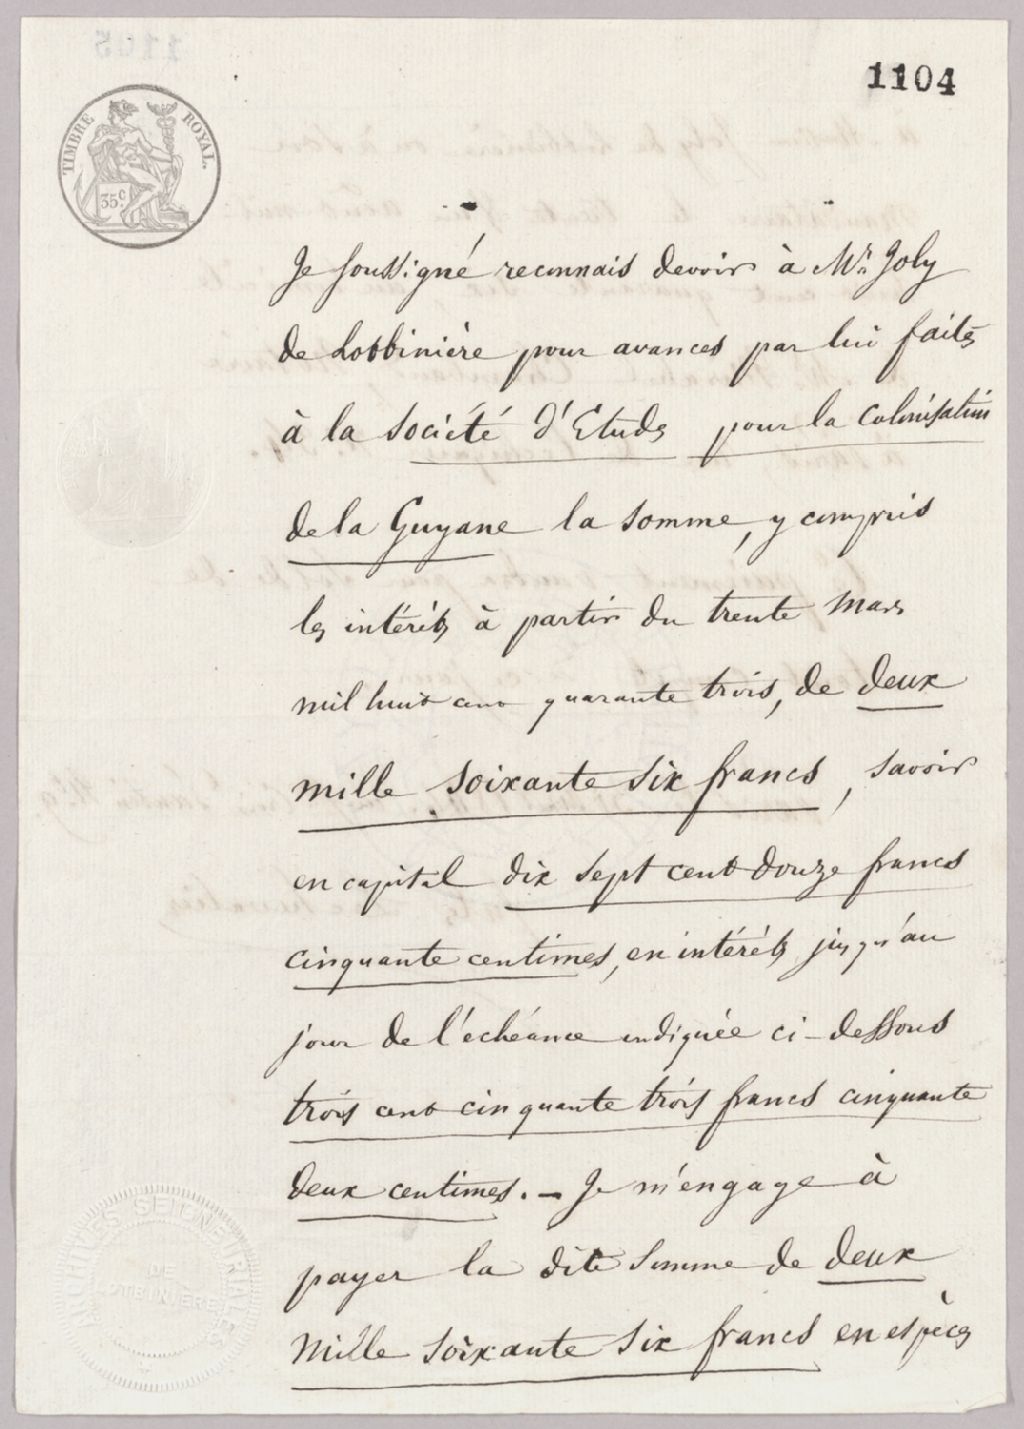 1104
TIMBRE ROYAL.
35c
Je soussigné reconnais devoir à Mr. Joly
de Lotbinière pour avances par lui faites
à la Société d'Etudes pour la Colonisation
de la Guyane la somme, y compris
les intérêts à partir du trente Mars
mil huit cent quarante trois, de deux
mille soixante six francs, savoir
en capital dix sept cent douze francs
cinquante centimes, en intérêts jusqu'au
jour de l'échéance indiquée ci-dessous
trois cent cinquante trois francs cinquante
deux centimes. — Je m'engage à
payer la dite somme de deux
Mille soixante six francs en espèces
ARCHIVES SEIGNEURIALES
DE
LOTBINIERE